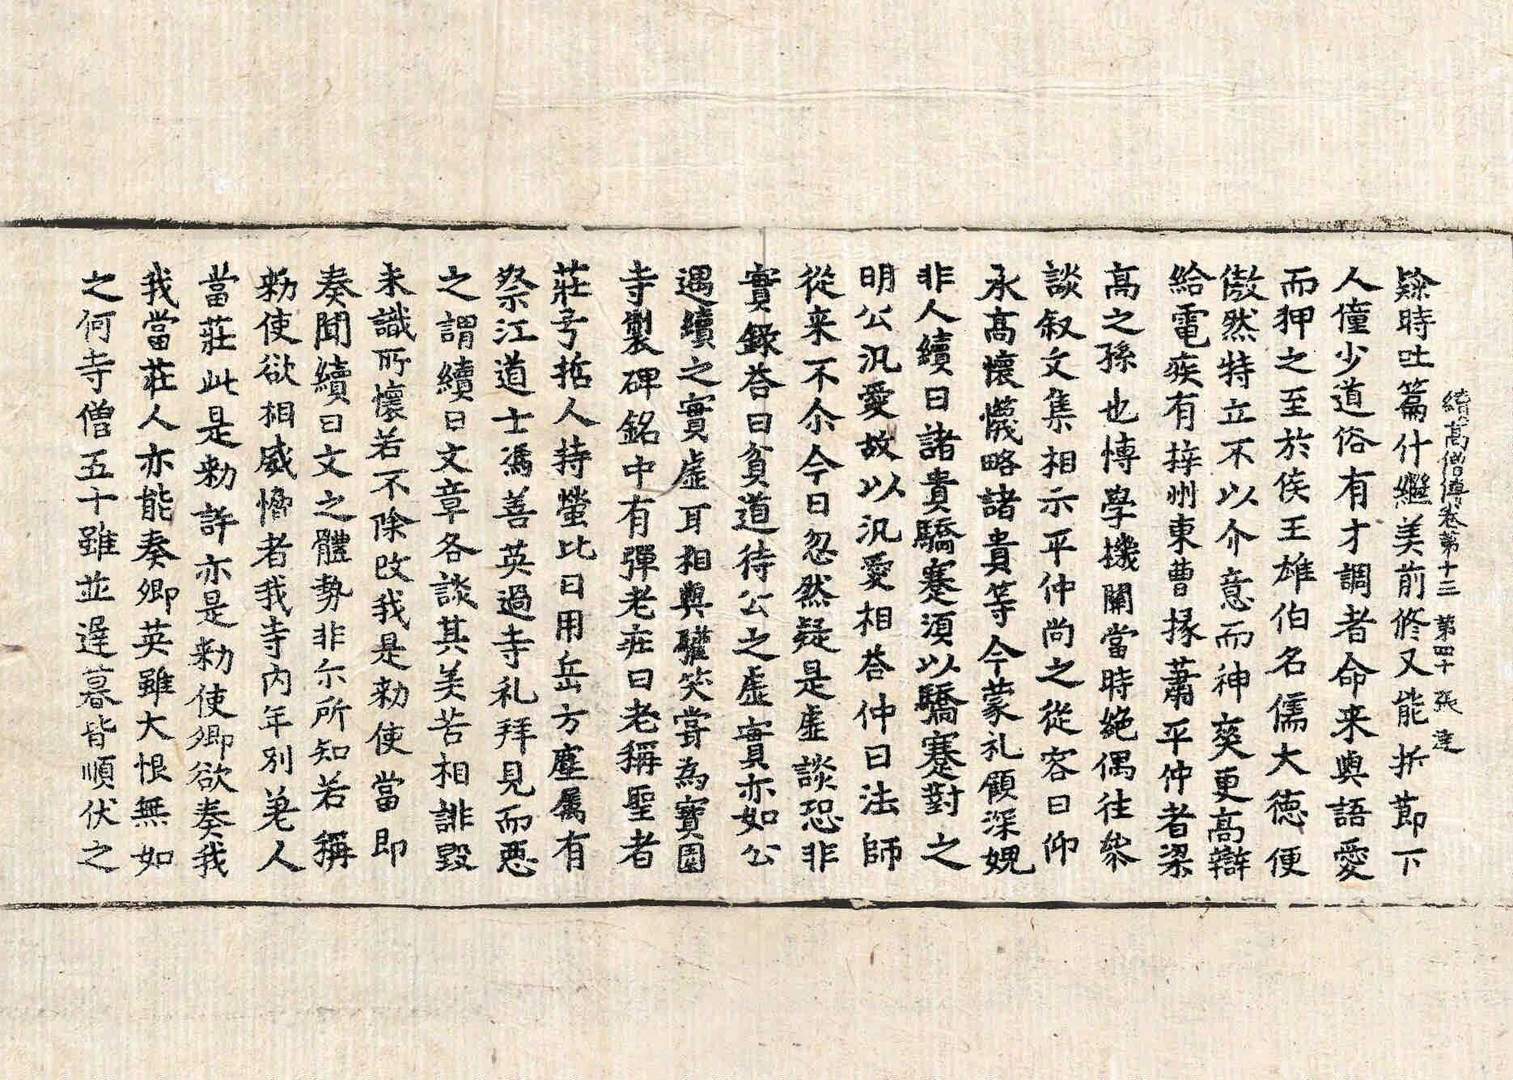 續高僧傳卷第十三　第四十張　達
隟時吐篇什繼美前修又能折節下
人僮少道俗有才調者命来與語愛
而狎之至於侯王雄伯名儒大德便
傲然特立不以介意而神奕更高辯
給電疾有梓州東曹掾蕭平仲者梁
高之孫也博學機關當時絕偶往參
談叙文集相示平仲尚之從容曰仰
承高懷懱略諸貴等今蒙礼顧深媿
非人續曰諸貴驕蹇須以驕蹇對之
明公汎愛故以汎愛相荅仲曰法師
從来不尒今日忽然疑是虛談恐非
實錄荅曰貧道待公之虛實亦如公
遇續之實虛耳相與驩笑嘗為寶園
寺製碑銘中有彈老庄曰老稱聖者
莊号哲人持螢比日用岳方塵属有
祭江道士馮善英過寺礼拜見而惡
之謂續曰文章各談其美苦相誹毀
未識所懷若不除改我是勑使當即
奏聞續曰文之體勢非尒所知若稱
勑使欲相威慴者我寺內年別差人
當莊此是勑許亦是勑使卿欲奏我
我當莊人亦能奏卿英雖大恨無如
之何寺僧五十雖並遲暮皆順伏之